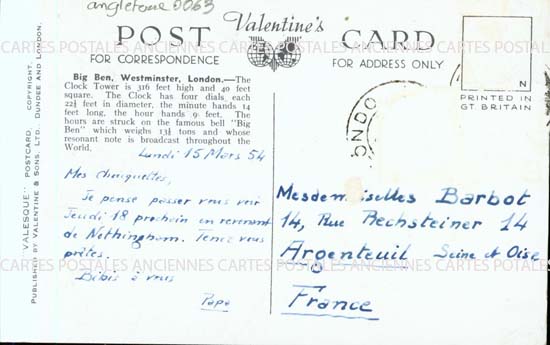 angleterre0063
POST Valentine's CARD
FOR CORRESPONDENCE
FOR ADDRESS ONLY
N
PRINTED IN
GT. BRITAIN
"VALESQUE" POSTCARD. COPYRIGHT.
PUBLISHED BY VALENTINE & SONS, LTD. DUNDEE AND LONDON.
Big Ben, Westminster, London.—The
Clock Tower is 316 feet high and 40 feet
square. The Clock has four dials, each
22½ feet in diameter, the minute hands 14
feet long, the hour hands 9 feet. The
hours are struck on the famous bell "Big
Ben" which weighs 13½ tons and whose
resonant note is broadcast throughout the
World.
Lundi 15 Mars 54
Mes chouquettes,
Je pense passer vous voir
Jeudi 18 prochain en revenant
de Nottingham. Tenez vous
prêtes.
Bibis à vous
Papa
ONDO
Mesdemoiselles Barbot
14, Rue Rechsteiner 14
Argenteuil Seine et Oise
France
CARTES POSTALES ANCIENNES CARTES POSTALES ANCIENNES CARTES POSTALES